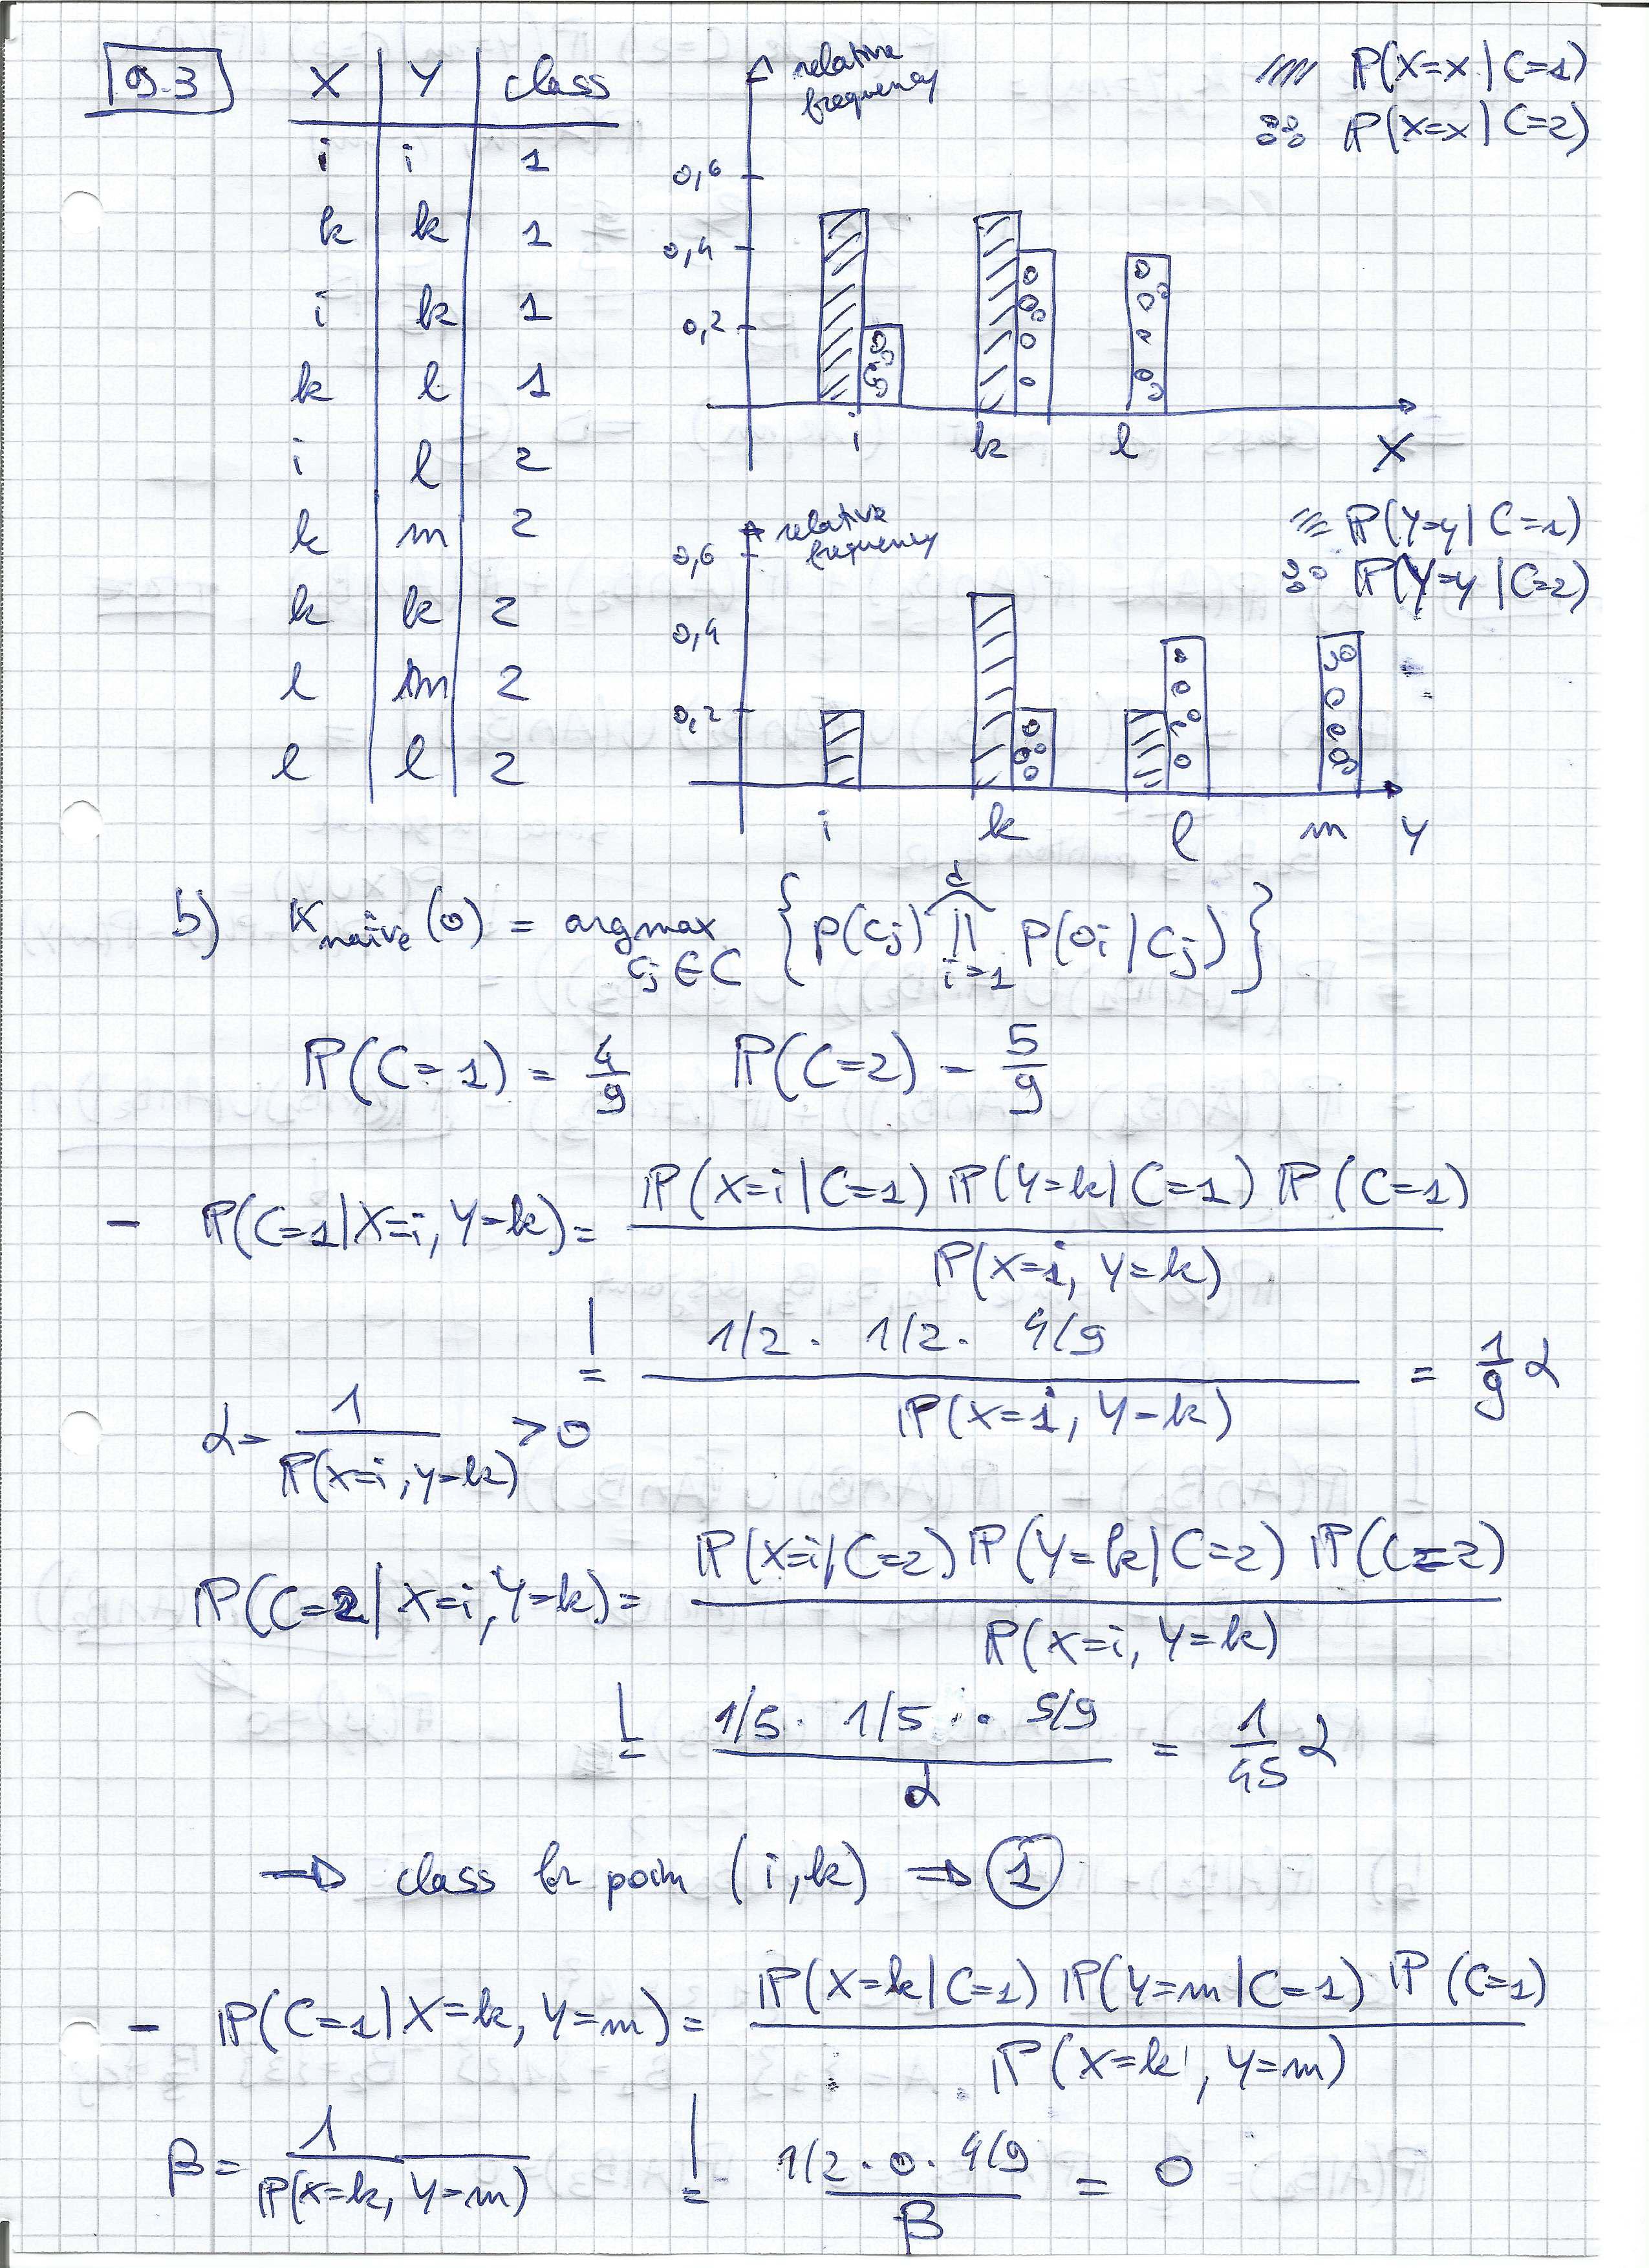 9.3
X | Y | class
i | i | 1
k | k | 1
i | k | 1
k | l | 1
i | l | 2
k | m | 2
k | k | 2
l | m | 2
l | l | 2
relative frequency
P(X=x | C=1)
P(X=x | C=2)
0,6
0,4
0,2
i k l X
relative frequency
P(Y=y | C=1)
P(Y=y | C=2)
0,6
0,4
0,2
i k l m Y
b) K naive (o) = argmax cj ∈ C { p(cj) ∏ i=1 d p(oi | cj) }
P(C=1) = 4/9 P(C=2) = 5/9
- P(C=1 | X=i, Y=k) = P(X=i | C=1) P(Y=k | C=1) P(C=1) / P(X=i, Y=k)
! = 1/2 · 1/2 · 4/9 / P(X=i, Y=k) = 1/9 α
α = 1 / P(X=i, Y=k) > 0
P(C=2 | X=i, Y=k) = P(X=i | C=2) P(Y=k | C=2) P(C=2) / P(X=i, Y=k)
! = 1/5 · 1/5 · 5/9 / α = 1/45 α
⇒ class for poin (i, k) ⇒ 1
- P(C=1 | X=k, Y=m) = P(X=k | C=1) P(Y=m | C=1) P(C=1) / P(X=k, Y=m)
β = 1 / P(X=k, Y=m) ! = 1/2 · 0 · 4/9 / β = 0